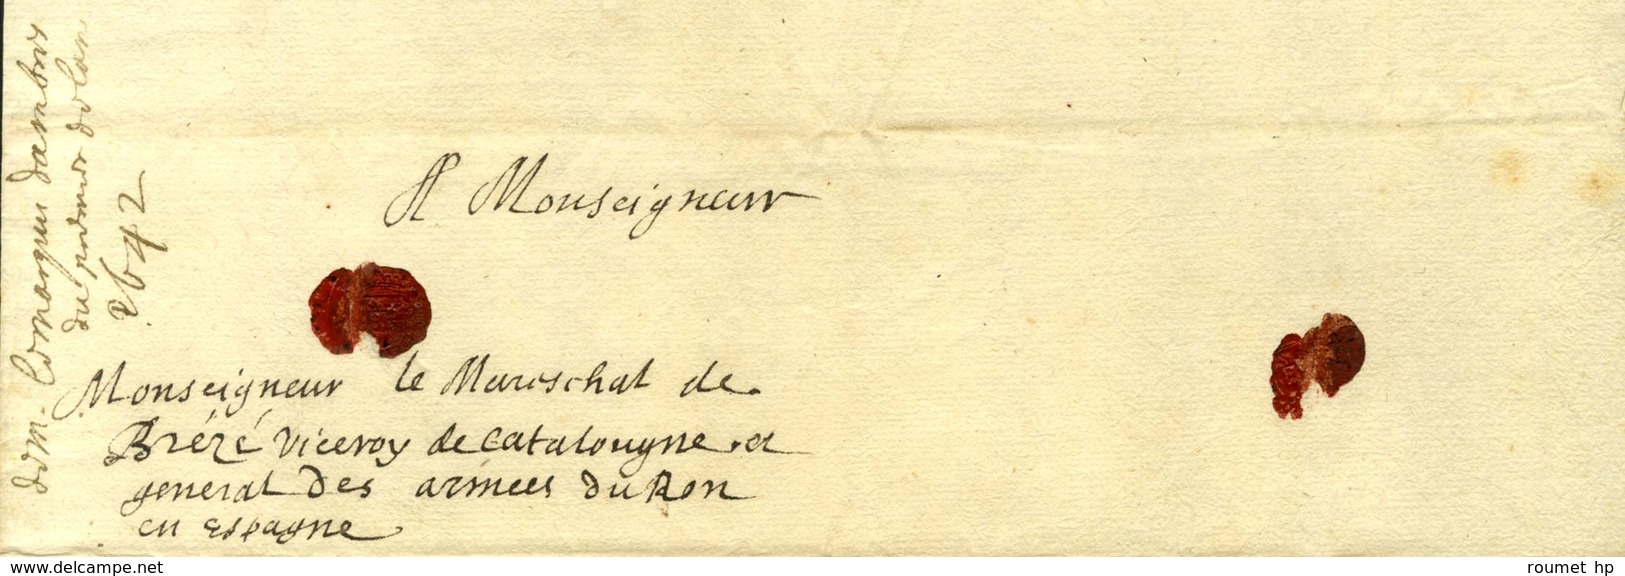 A Monseigneur
Monseigneur le Mareschal de
Brézé Viceroy de Catalougne et
general des armees du Roy
en espagne
du premier
1642
www.delcampe.net
roumet hp